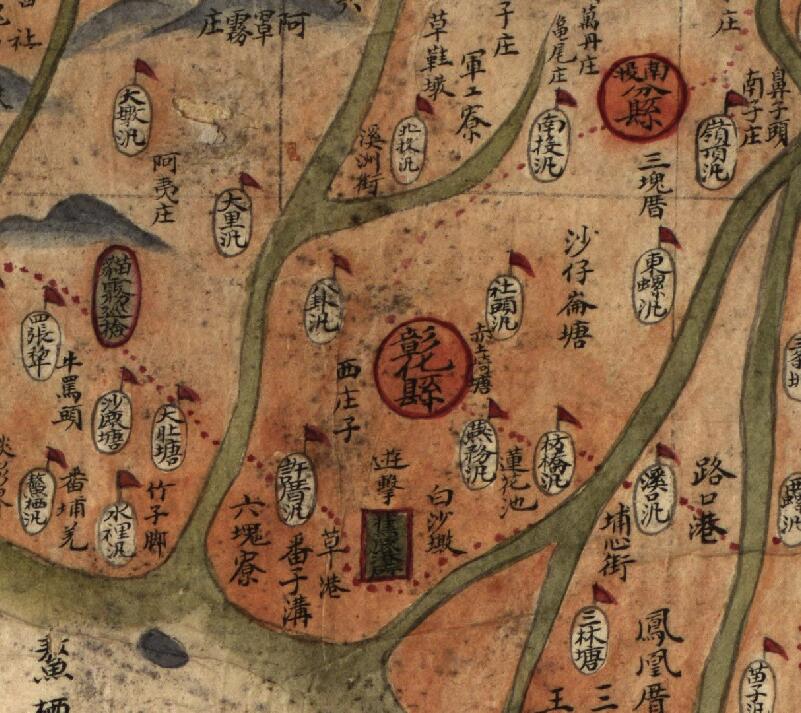 阿罩霧庄
草鞋墩
軍工寮
子庄
萬丹庄
南投分縣
鼻子頭
南子庄
大墩汛
阿夷庄
溪洲街
北投汛
南投汛
嶺頂汛
三塊厝
大里汛
貓霧巡檢
四張犂
牛罵頭
八卦汛
社頭汛
沙仔崙塘
東螺汛
彰化縣
西庄子
赤土崎塘
沙鹿塘
大肚塘
燕務汛
蓮花池
枋橋汛
溪口汛
路口港
許厝汛
遊擊
白沙墩
鰲栖汛
番埔羌
水裡汛
竹子脚
六塊寮
番子溝
草港
埔心街
三林塘
鳳凰厝
鰲栖
王
三
苗子汛